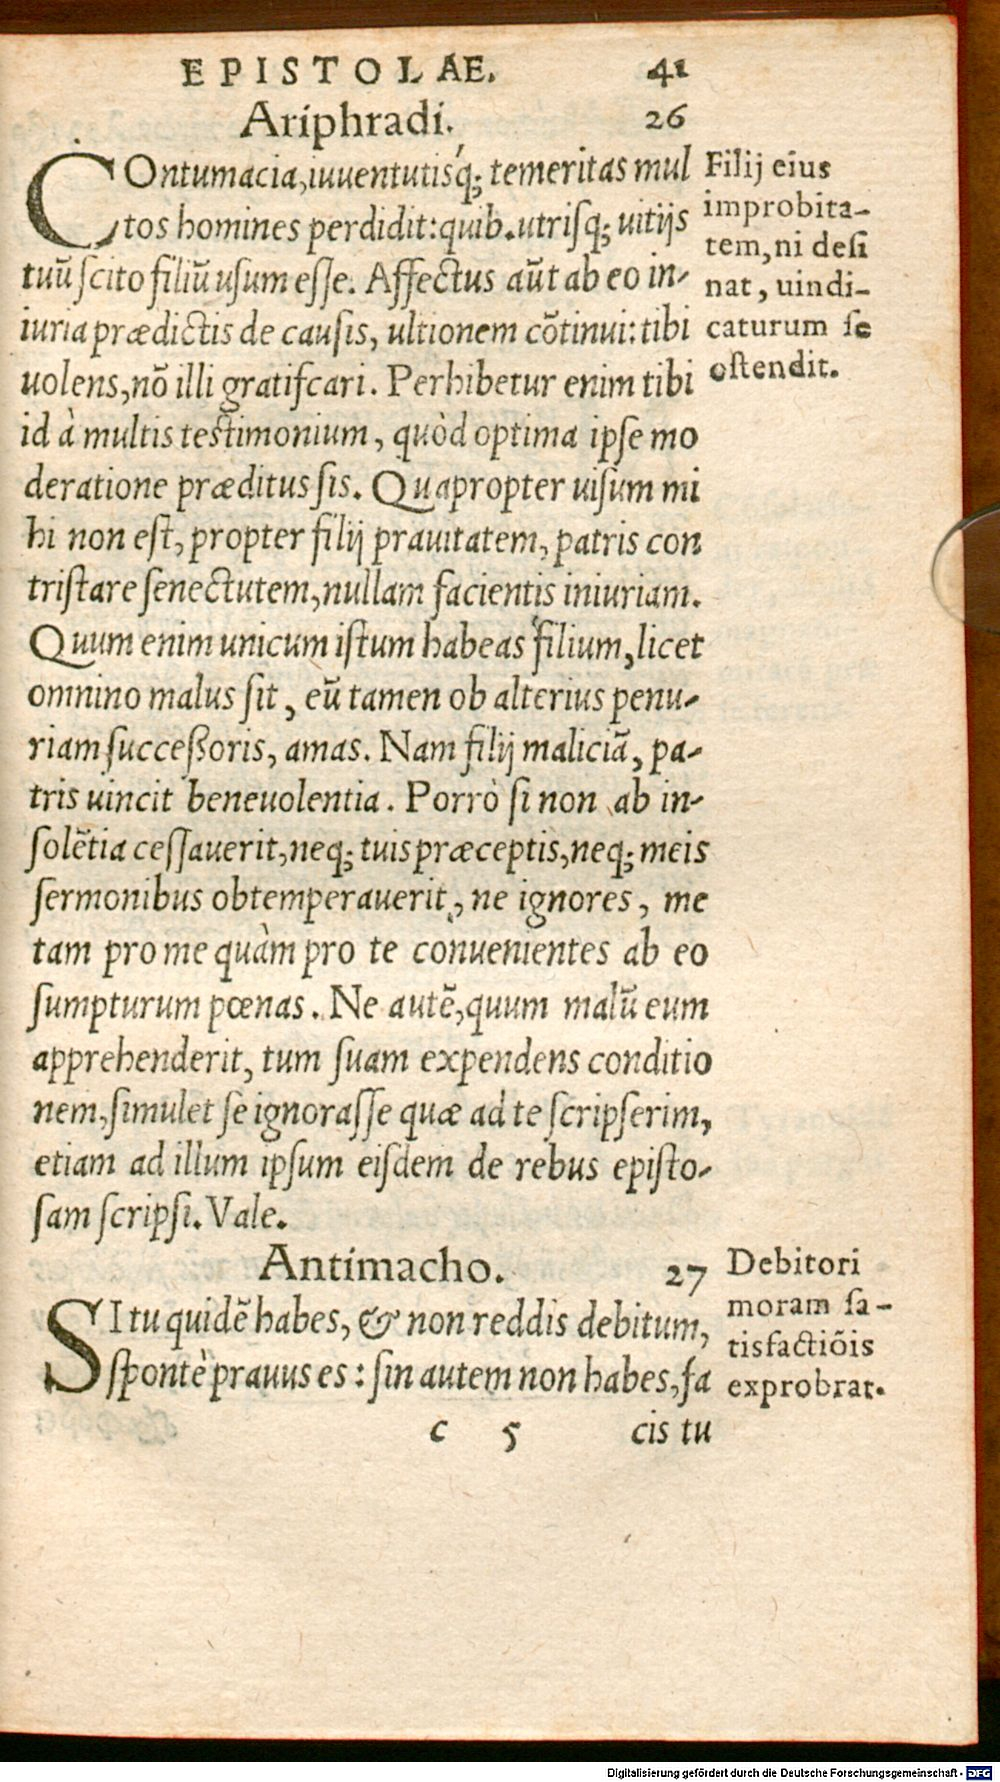 EPISTOLAE. 41
Ariphradi. 26
COntumacia,iuuentutisq́; temeritas mul
tos homines perdidit:quib.utrisq; uitijs
tuũ scito filiũ usum esse. Affectus aũt ab eo in-
iuria prædictis de causis, ultionem cõtinui: tibi
uolens,nõ illi gratifcari. Perhibetur enim tibi
id à multis testimonium, quòd optima ipse mo
deratione præditus sis. Quapropter uisum mi
hi non est, propter filij prauitatem, patris con
tristare senectutem,nullam facientis iniuriam.
Quum enim unicum istum habeas filium,licet
omnino malus sit, eũ tamen ob alterius penu-
riam succeßoris, amas. Nam filij maliciã, pa-
tris uincit beneuolentia. Porrò si non ab in-
solẽtia cessauerit,neq; tuis præceptis,neq; meis
sermonibus obtemperauerit, ne ignores, me
tam pro me quàm pro te conuenientes ab eo
sumpturum pœnas. Ne autẽ,quum malũ eum
apprehenderit, tum suam expendens conditio
nem,simulet se ignorasse quæ ad te scripserim,
etiam ad illum ipsum eisdem de rebus episto-
sam scripsi. Vale.
Filij eius
improbita-
tem,ni desi
nat, uindi-
caturum se
ostendit.
Antimacho. 27
SI tu quidẽ habes, & non reddis debitum,
spontè prauus es: sin autem non habes,fa
Debitori
moram sa-
tisfactiõis
exprobrat.
c 5 cis tu
Digitalisierung gefördert durch die Deutsche Forschungsgemeinschaft - DFG